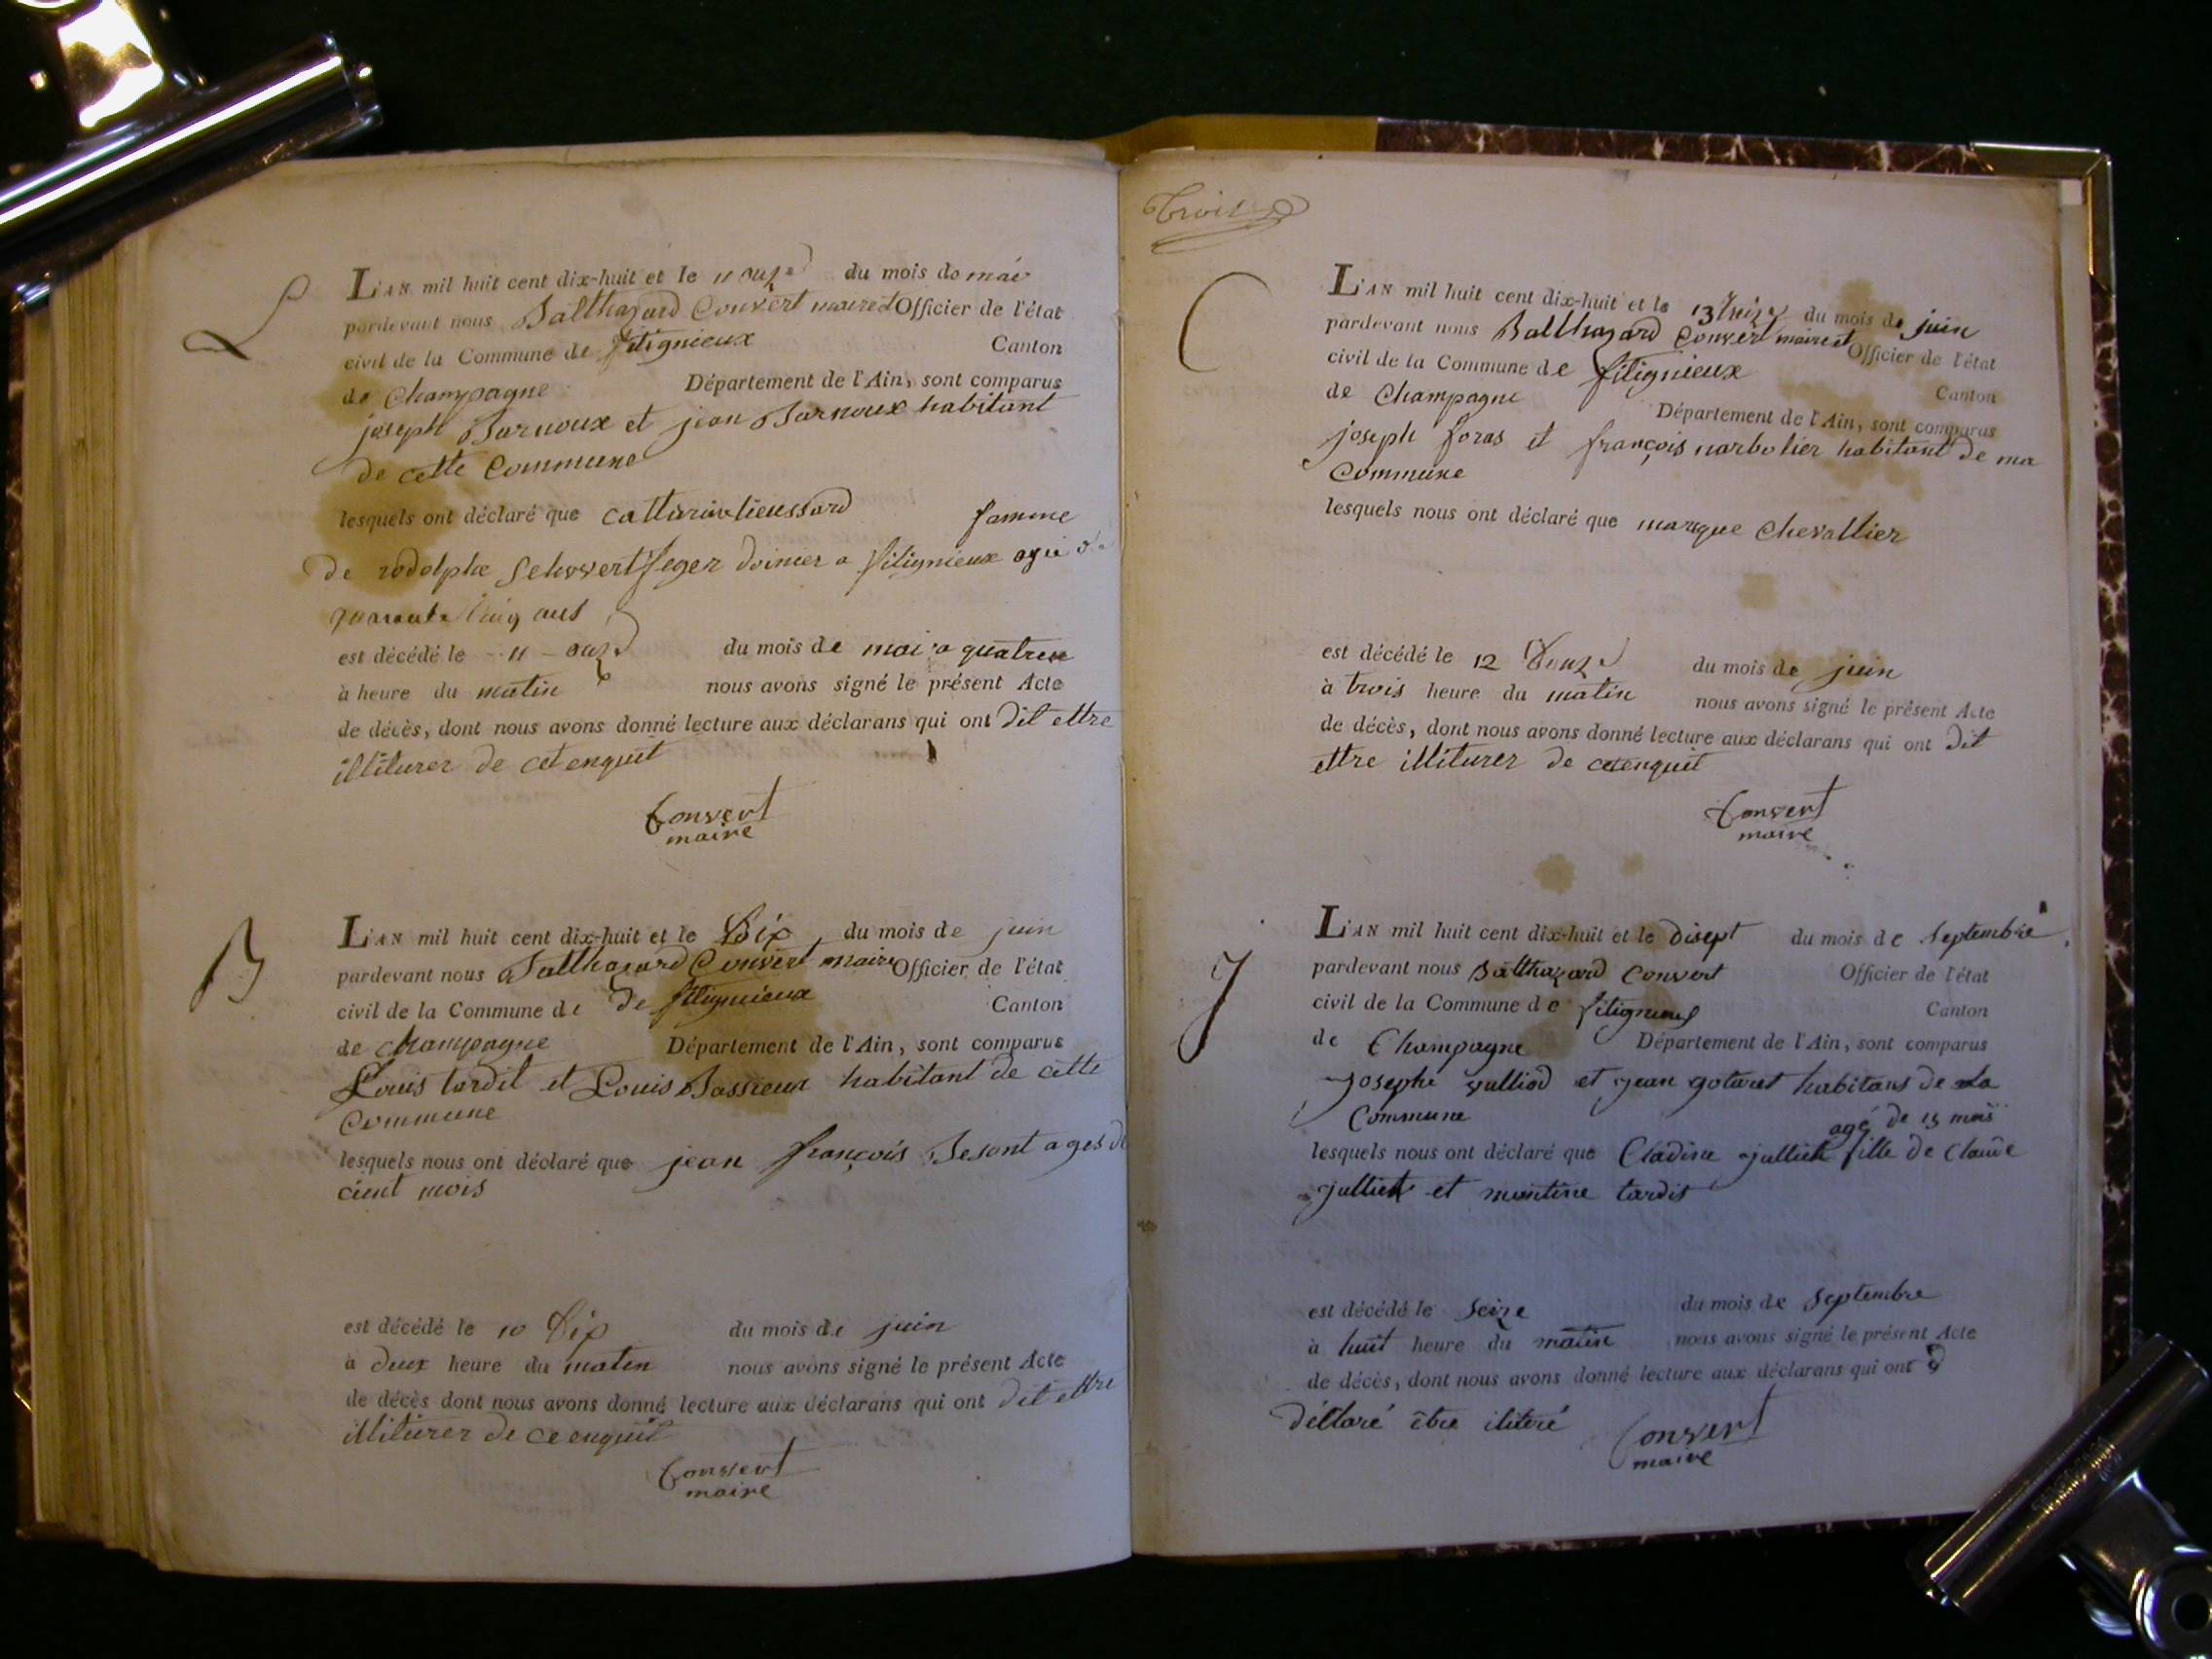 L
L'AN mil huit cent dix-huit et le 11 onze du mois de mai
pardevant nous Balthazard Convert maire et Officier de l'état
civil de la Commune de fitignieux Canton
de Champagne Département de l'Ain, sont comparus
joseph Barnoux et jean Barnoux habitant
de cette Commune
lesquels ont déclaré que famme
de rodolphe a fitignieux agée de
quarante ans
est décédé le 11 onze du mois de mai a quatre
à heure du matin nous avons signé le présent Acte
de décès, dont nous avons donné lecture aux déclarans qui ont dit ettre
illiturer de cet enquit
Convert
maire
B
L'AN mil huit cent dix-huit et le Dix du mois de juin
pardevant nous Balthazard Convert maire Officier de l'état
civil de la Commune de de fitignieux Canton
de champagne Département de l'Ain, sont comparus
Louis tardit et Louis Bassieux habitant de cette
Commune
lesquels nous ont déclaré que jean françois Besont ages de
cient mois
est décédé le 10 Dix du mois de juin
à deux heure du maten nous avons signé le présent Acte
de décès dont nous avons donné lecture aux déclarans qui ont dit ettre
illiturer de ce enquit
Convert
maire
Trois
C
L'AN mil huit cent dix-huit et le 13 treize du mois de juin
pardevant nous Balthazard Convert maire et Officier de l'état
civil de la Commune de fitignieux Canton
de Champagne Département de l'Ain, sont comparus
joseph foras et françois narbolier habitant de ma
Commune
lesquels nous ont déclaré que marque Chevallier
est décédé le 12 Douze du mois de juin
à trois heure du matin nous avons signé le présent Acte
de décès, dont nous avons donné lecture aux déclarans qui ont dit
ettre illiturer de cetenquit
Convert
maire
J
L'AN mil huit cent dix-huit et le disept du mois de Septembre
pardevant nous Balthazard Convert Officier de l'état
civil de la Commune de Canton
de Champagne Département de l'Ain, sont comparus
Josephe vulliod et jean goturet habitans de la
Commune agé de 15 mois
lesquels nous ont déclaré que Cladine julliet fille de Claude
julliet et tardit
est décédé le seize du mois de Septembre
à huit heure du matin nous avons signé le présent Acte
de décès, dont nous avons donné lecture aux déclarans qui ont d
déclaré être ilitéré
Convert
maire